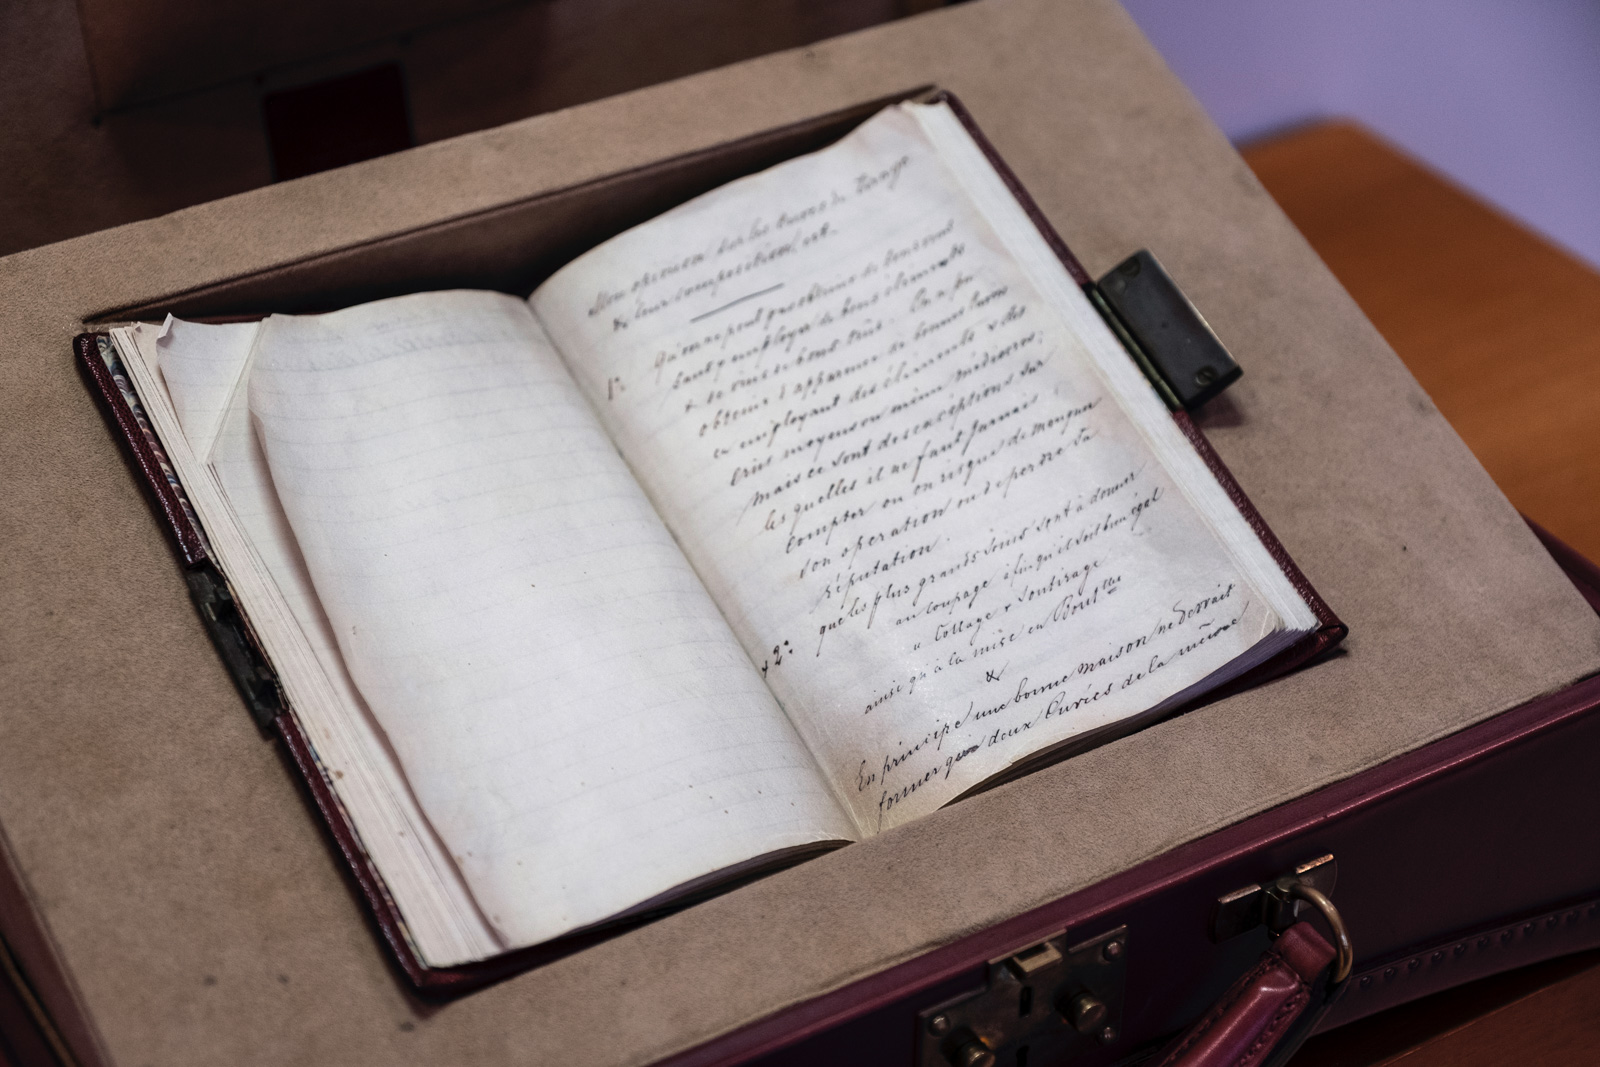 Mon opinion sur les cuvées de Tirage
& leur composition, est.
1°. Qu'on ne peut pas obtenir de bons vins
sans employer de bons éléments
& de vins de bons crûs. On a pu
obtenir l'apparence de bonnes cuvées
en employant des éléments & des
crûs moyens ou même médiocres;
mais ce sont des exceptions sur
lesquelles il ne faut jamais
compter ou on risque de manquer
son opération ou de perdre sa
réputation.
+ 2° que les plus grands soins sont à donner
au coupage, afin qu'il soit bien égal
" Collage & soutirage
ainsi qu'à la mise en Bout.lles
&
En principe une bonne maison ne devrait
former que deux Cuvées de la même